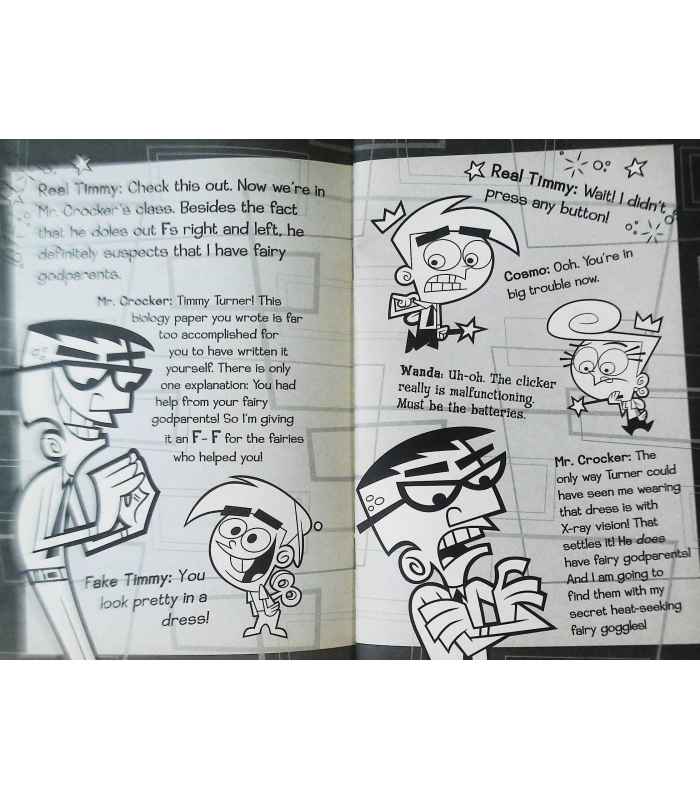 Real Timmy: Check this out. Now we're in
Mr. Crocker's class. Besides the fact
that he doles out Fs right and left, he
definitely suspects that I have fairy
godparents.
Mr. Crocker: Timmy Turner! This
biology paper you wrote is far
too accomplished for
you to have written it
yourself. There is only
one explanation: You had
help from your fairy
godparents! So I'm giving
it an F- F for the fairies
who helped you!
Fake Timmy: You
look pretty in a
dress!
Real Timmy: Wait! I didn't
press any button!
Cosmo: Ooh. You're in
big trouble now.
Wanda: Uh-oh. The clicker
really is malfunctioning.
Must be the batteries.
Mr. Crocker: The
only way Turner could
have seen me wearing
that dress is with
X-ray vision! That
settles it! He does
have fairy godparents!
And I am going to
find them with my
secret heat-seeking
fairy goggles!